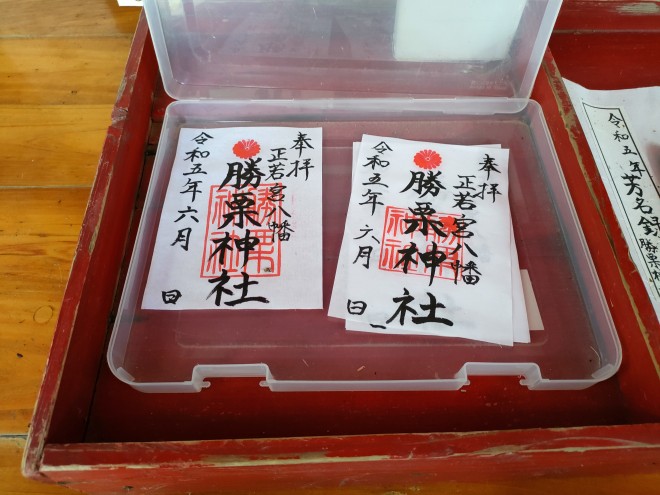 奉拝
正若宮八幡
勝栗神社
令和五年六月
日
奉拝
正若宮八幡
勝栗神社
令和五年六月
日
令和五年芳名録
勝栗